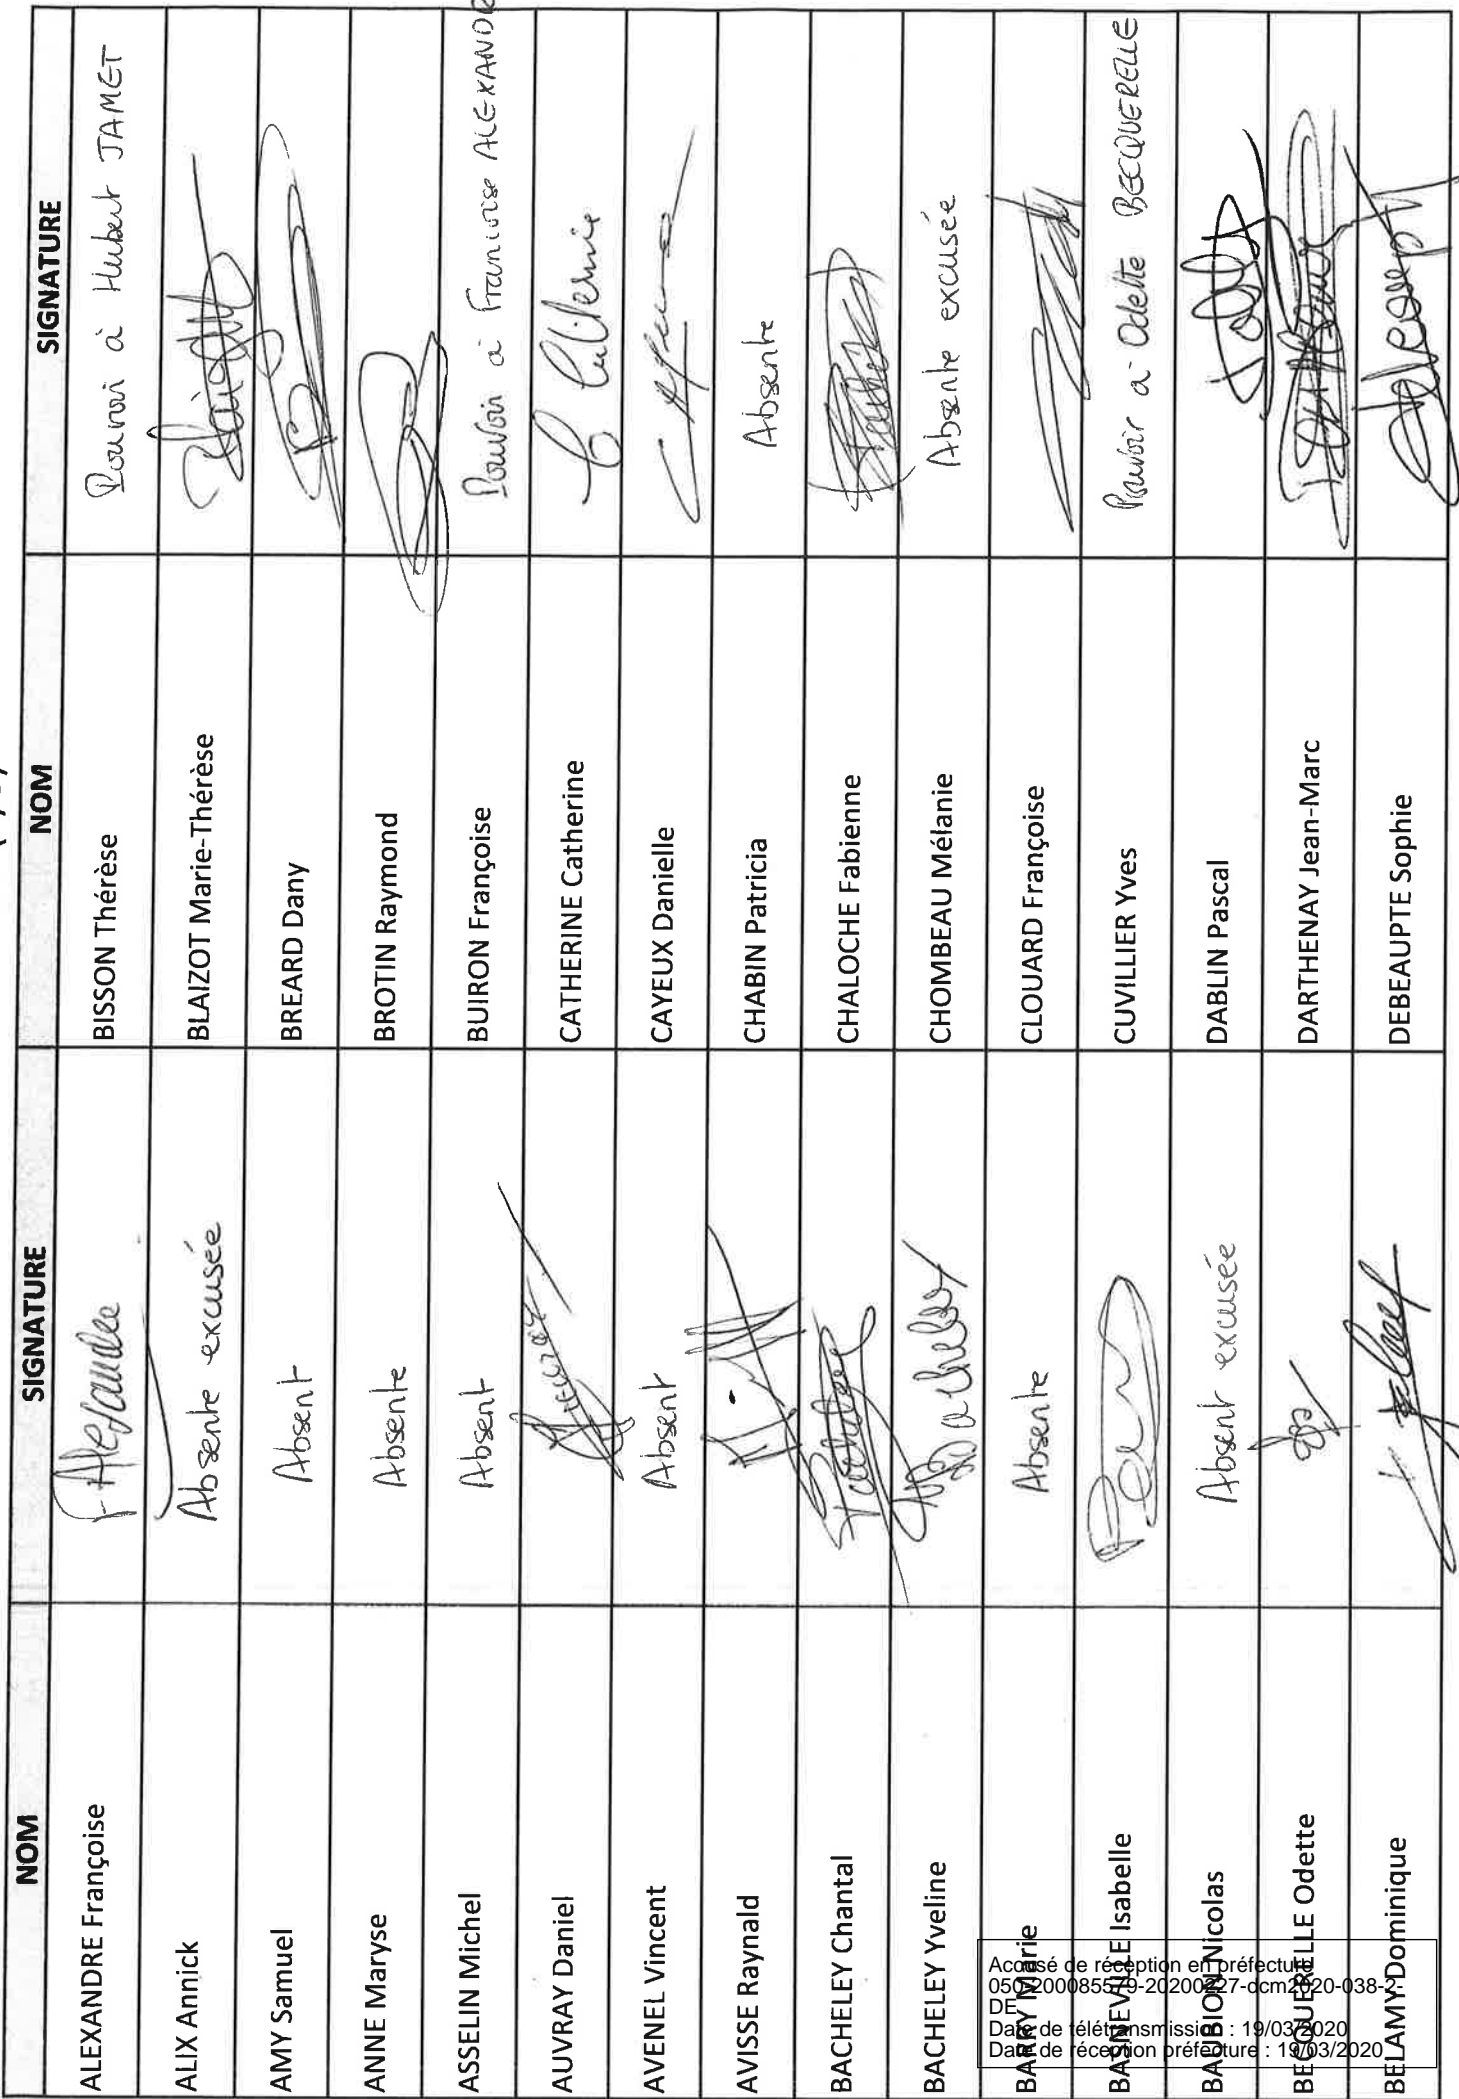 NOM SIGNATURE NOM SIGNATURE
ALEXANDRE Françoise BISSON Thérèse Pouvoir à Hubert JAMET
ALIX Annick Absente excusée BLAIZOT Marie-Thérèse
AMY Samuel Absent BREARD Dany
ANNE Maryse Absente BROTIN Raymond
ASSELIN Michel Absent BUIRON Françoise Pouvoir à Françoise ALEXANDRE
AUVRAY Daniel CATHERINE Catherine
AVENEL Vincent Absent CAYEUX Danielle
AVISSE Raynald CHABIN Patricia Absente
BACHELEY Chantal CHALOCHE Fabienne
BACHELEY Yveline CHOMBEAU Mélanie Absente excusée
BARRY Marie Absente CLOUARD Françoise
BASNEVILLE Isabelle CUVILLIER Yves Pouvoir à Odette BECQUERELLE
BAUBION Nicolas Absent excusée DABLIN Pascal
BECQUERELLE Odette DARTHENAY Jean-Marc
BELAMY Dominique DEBEAUPTE Sophie
Accusé de réception en préfecture
050-200085579-20200227-dcm2020-038-2-
DE
Date de télétransmission : 19/03/2020
Date de réception préfecture : 19/03/2020